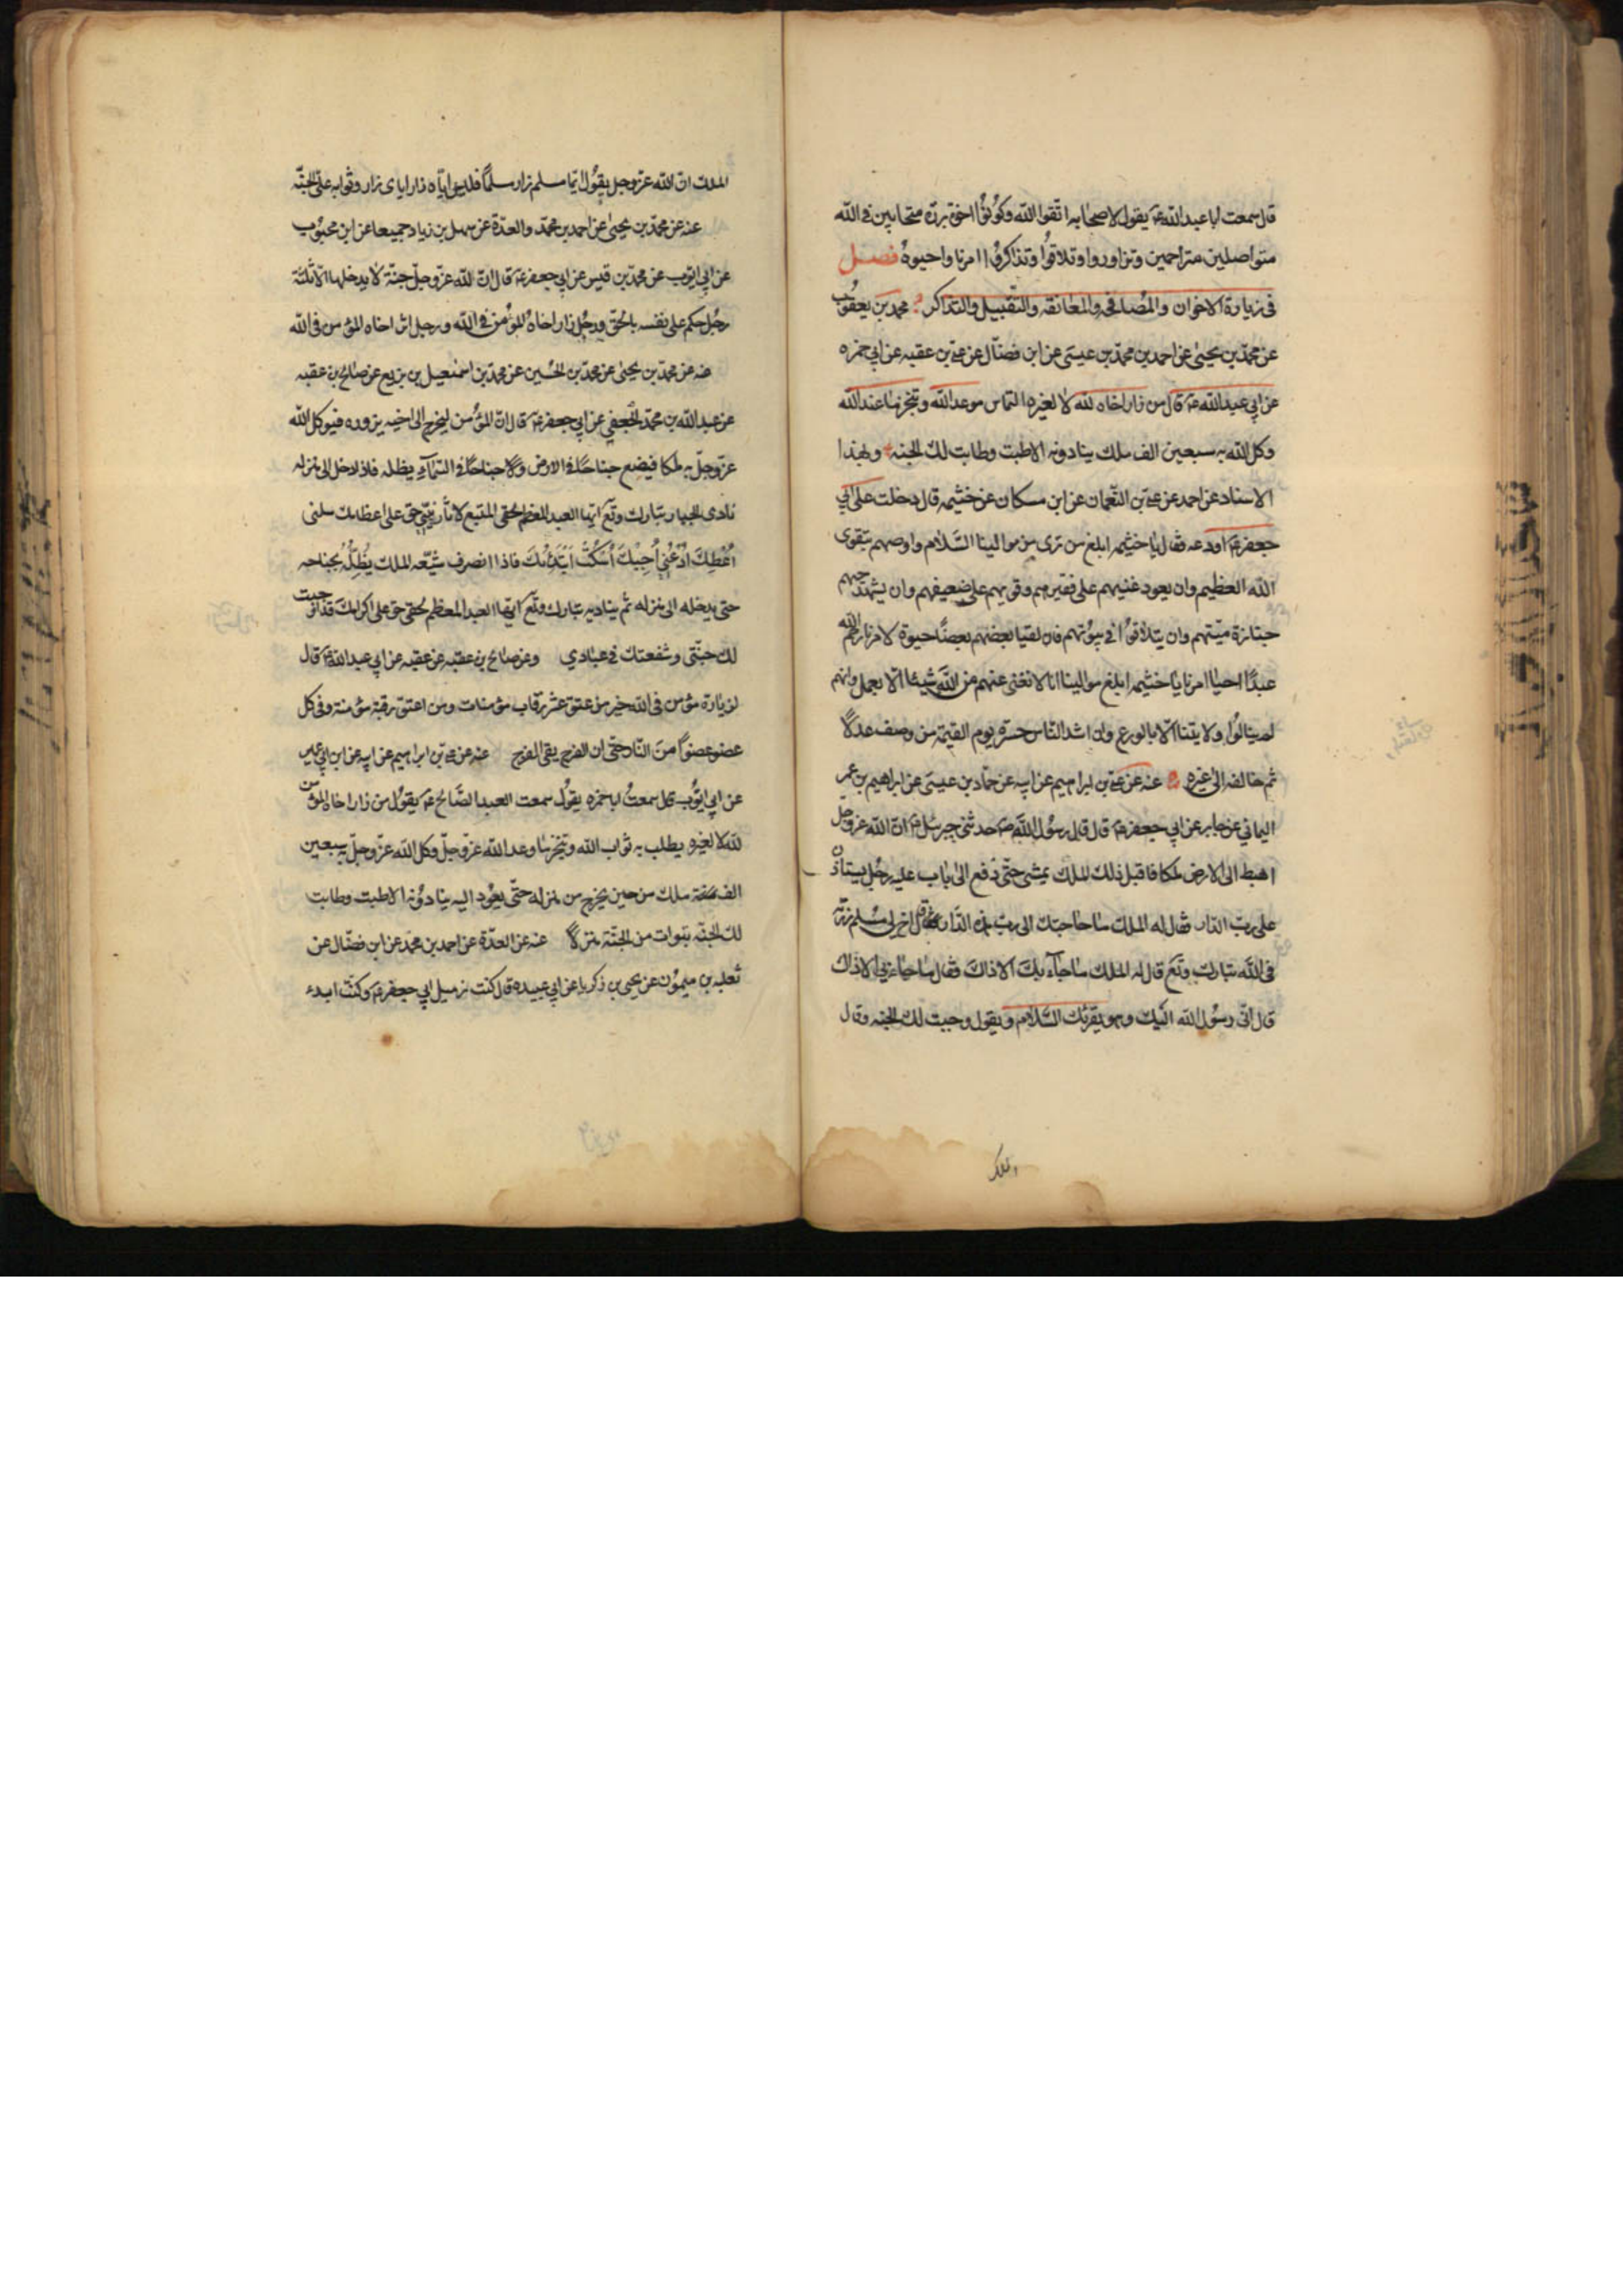 قال سمعت ابا عبدالله ع يقول لاصحابه اتقوا الله وكونوا اخوة بررة متحابين فى الله
متواصلين متراحمين وتزاوروا وتلاقوا وتذاكروا امرنا واحيوه فصل
فى زيارة الاخوان والمصافحه والمعانقه والتقبيل والتذاكر محمد بن يعقوب
عن محمد بن يحيى عن احمد بن محمد بن عيسى عن ابن فضال عن على بن عقبه عن ابى حمزه
عن ابى عبدالله ع قال من زار اخاه لله لا لغيره التماس موعد الله وتنجز ما عند الله
وكل الله به سبعين الف ملك ينادونه الا طبت وطابت لك الجنه وبهذا
الاسناد عن احمد عن على بن النعمان عن ابن مسكان عن خثيمه قال دخلت على ابى
جعفر ع اودعه فقال يا خثيمه ابلغ من ترى من موالينا السلام واوصهم بتقوى
الله العظيم وان يعود غنيهم على فقيرهم وقويهم على ضعيفهم وان يشهد حيهم
جنازة ميتهم وان يتلاقوا فى بيوتهم فان لقيا بعضهم بعضا حيوة لامرنا رحم الله
عبدا احيا امرنا يا خثيمه ابلغ موالينا انا لا نغنى عنهم من الله شيئا الا بعمل وانهم
لن ينالوا ولايتنا الا بالورع وان اشد الناس حسرة يوم القيمة من وصف عدلا
ثم خالفه الى غيره عنه عن على بن ابراهيم عن ابيه عن حماد بن عيسى عن ابراهيم بن عمر
اليمانى عن جابر عن ابى جعفر ع قال قال رسول الله ص حدثنى جبرئيل ع ان الله عز وجل
اهبط الى الارض ملكا فاقبل ذلك الملك يمشى حتى دفع الى باب عليه رجل يستاذن
على رب الدار فقال له الملك ما حاجتك الى رب هذه الدار قال اخ لى مسلم زرته
فى الله تبارك وتع قال له الملك ما جاء بك الا ذاك فقال ما جاء بى الا ذاك
قال انى رسول الله اليك وهو يقرئك السلام ويقول وجبت لك الجنه وقال
الملك
الملك ان الله عز وجل يقول ايما مسلم زار مسلما فليس اياه زار اياى زار وثوابه على الجنة
عنه عن محمد بن يحيى عن احمد بن محمد والعدة عن سهل بن زياد جميعا عن ابن محبوب
عن ابى ايوب عن محمد بن قيس عن ابى جعفر ع قال ان لله عز وجل جنة لا يدخلها الا ثلثة
رجل حكم على نفسه بالحق ورجل زار اخاه المؤمن فى الله ورجل اثر اخاه المؤمن فى الله
عنه عن محمد بن يحيى عن محمد بن الحسين عن محمد بن اسمعيل بن بزيع عن صالح بن عقبه
عن عبدالله بن محمد الجعفى عن ابى جعفر ع قال ان المؤمن ليخرج الى اخيه يزوره فيوكل الله
عز وجل به ملكا فيضع جناحا فى الارض وجناحا فى السمآء يظله فاذا دخل الى منزله
نادى الجبار تبارك وتع ايها العبد المعظم لحقى المتبع لاثار نبيى حق على اعظامك سلنى
اعطك ادعنى اجبك اسكت ابتدئك فاذا انصرف شيعه الملك يظله بجناحه
حتى يدخله الى منزله ثم يناديه تبارك وتع ايها العبد المعظم لحقى حق على اكرامك قد اوجبت
لك جنتى وشفعتك فى عبادي وعن صالح بن عقبه عن عقبه عن ابى عبدالله ع قال
لزيارة مؤمن فى الله خير من عتق عشر رقاب مؤمنات ومن اعتق رقبة مؤمنة وقى كل
عضو عضوا من النار حتى ان الفرج يقى الفرج عنه عن على بن ابراهيم عن ابيه عن ابن ابى عمير
عن ابى ايوب قال سمعت ابا حمزه يقول سمعت العبد الصالح ع يقول من زار اخاه المؤمن
لله لا لغيره يطلب به ثواب الله وتنجز ما وعد الله عز وجل وكل الله عز وجل به سبعين
الف ملك من حين يخرج من منزله حتى يعود اليه ينادونه الا طبت وطابت
لك الجنه تبوات من الجنة منزلا عنه عن العدة عن احمد بن محمد عن ابن فضال عن
ثعلبه بن ميمون عن يحيى بن زكريا عن ابى عبيده قال كنت زميل ابى جعفر ع وكنت ابدء